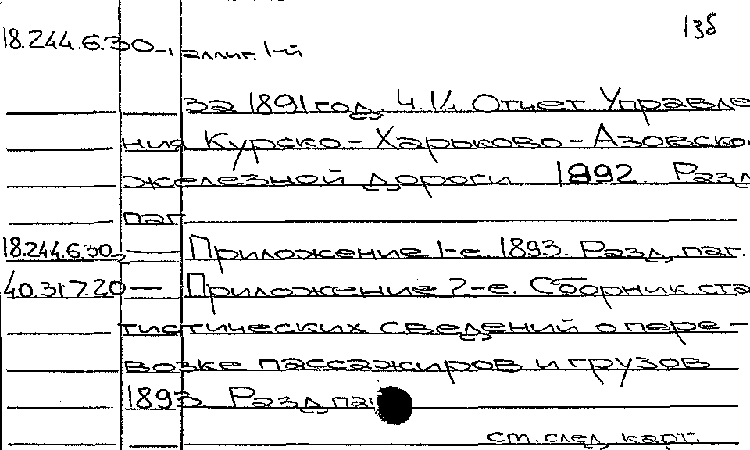 135
18.244.6.30 — 1 аллиг. 1-й
за 1891 год. Ч. IV. Отчет Управле
ния Курско-Харьково-Азовско
железной дороги 1892. Разд.
паг.
18.244.6.30 — Приложение 1-е. 1893. Разд. паг.
40.317.20 — Приложение 2-е. Сборник ста
тистических сведений о пере-
возке пассажиров и грузов
1893. Разд. паг.
см. след. карт.